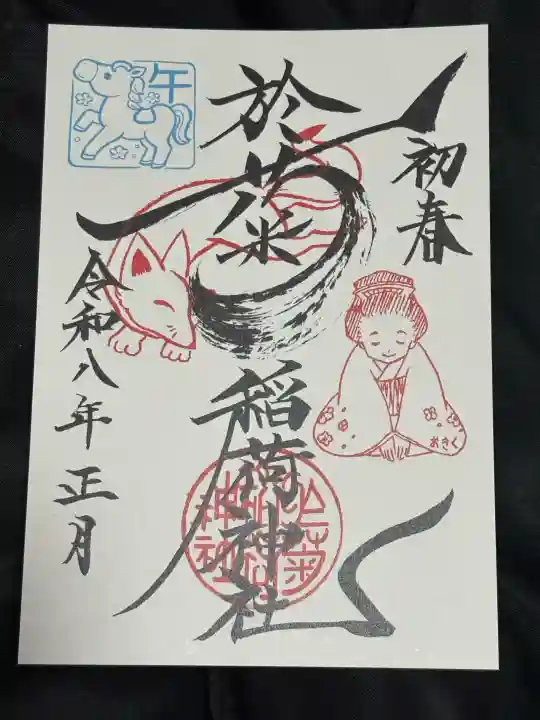 初春
於菊稲荷神社
令和八年正月
午
おきく